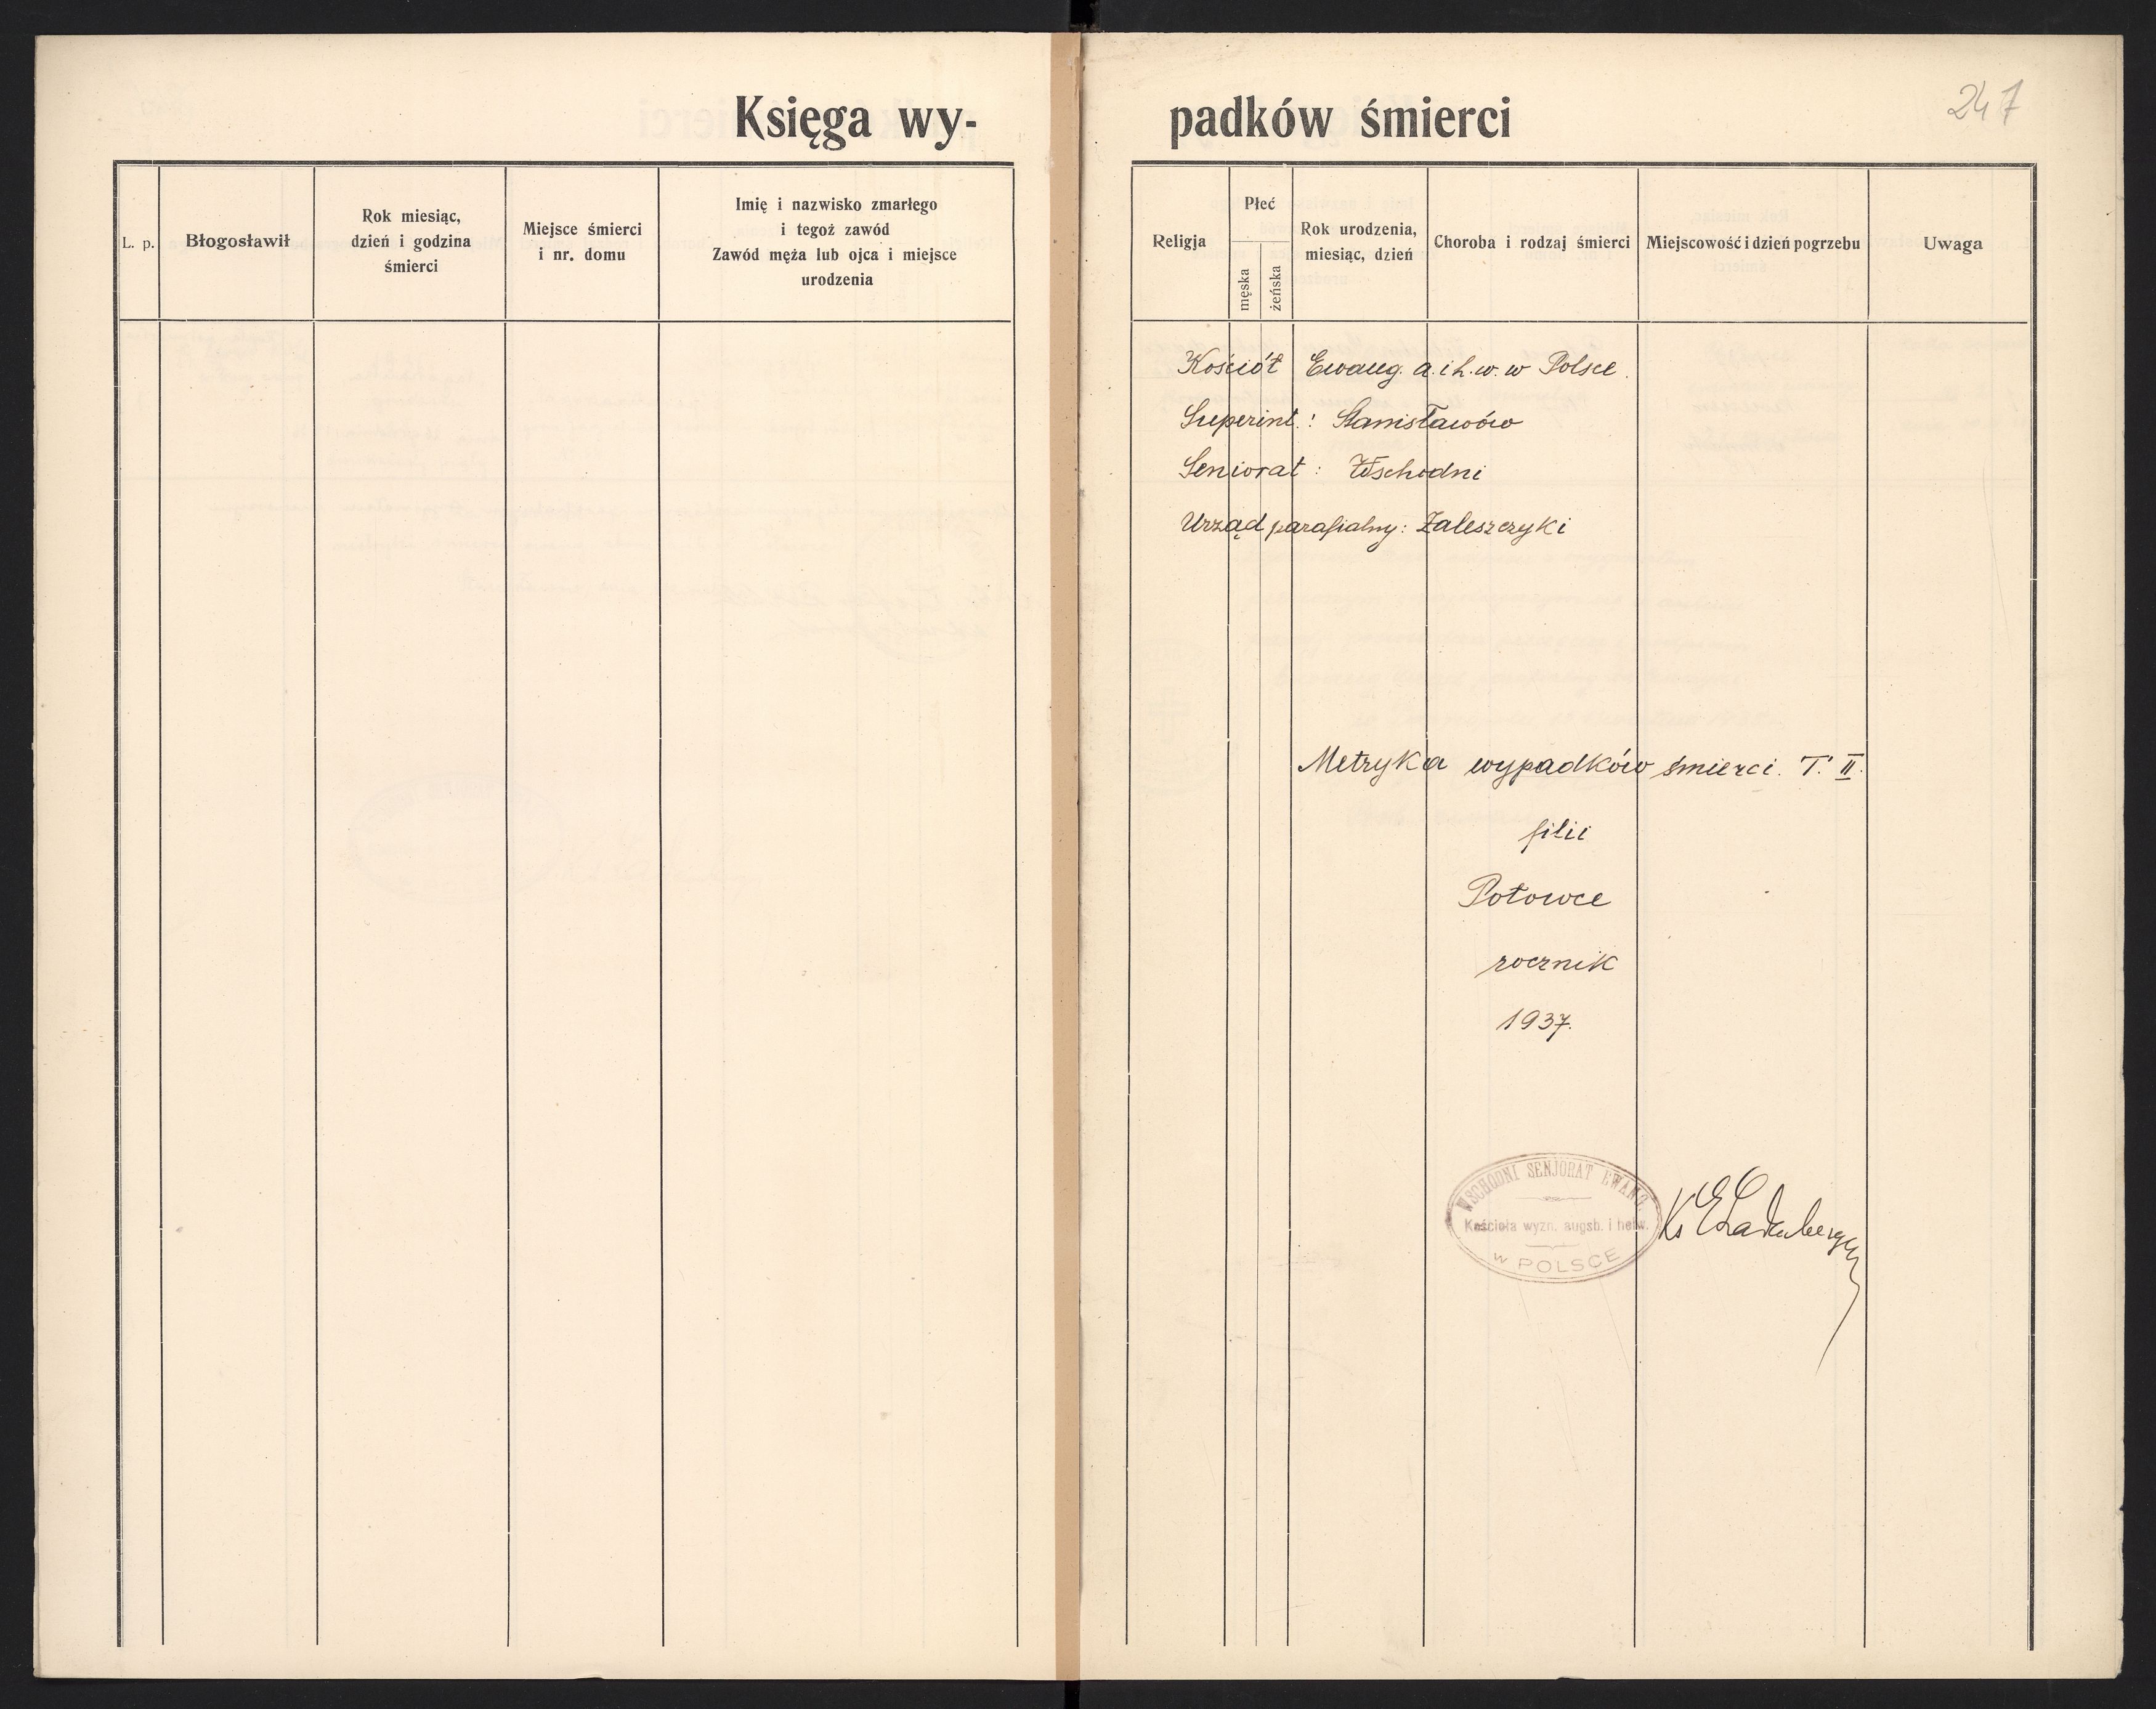 Księga wy-
padków śmierci
247
L. p.
Błogosławił
Rok miesiąc,
dzień i godzina
śmierci
Miejsce śmierci
i nr. domu
Imię i nazwisko zmarłego
i tegoż zawód
Zawód męża lub ojca i miejsce
urodzenia
Religja
Płeć
męska
żeńska
Rok urodzenia,
miesiąc, dzień
Choroba i rodzaj śmierci
Miejscowość i dzień pogrzebu
Uwaga
Kościół Ewang. a. i h. w. w Polsce.
Superint.: Stanisławów
Seniorat: Wschodni
Urząd parafialny: Zaleszczyki
Metryka wypadków śmierci. T. II.
filii
Połowce
rocznik
1937.
WSCHODNI SENJORAT EWANG.
Kościoła wyzn. augsb. i helw.
w POLSCE
Ks E Ladenberger